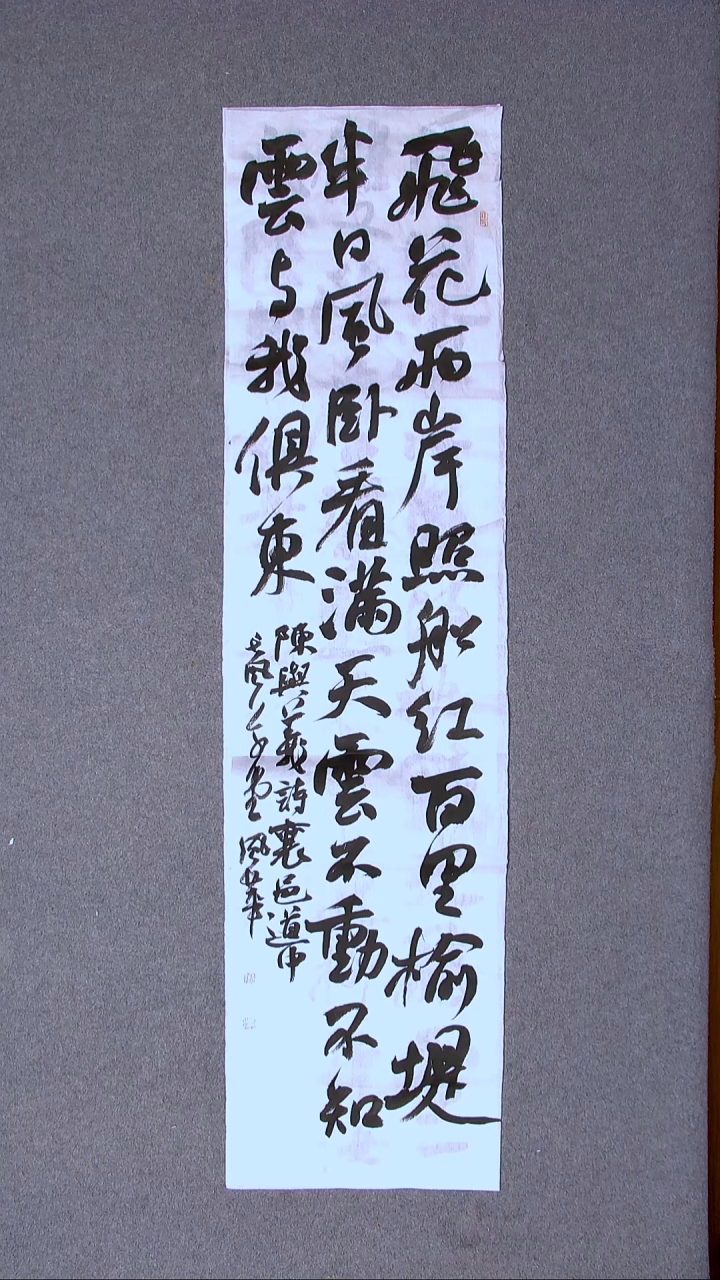 飛花兩岸照船红百里榆堤
半日風卧看满天雲不動不知
雲与我俱東
陳與義詩襄邑道中